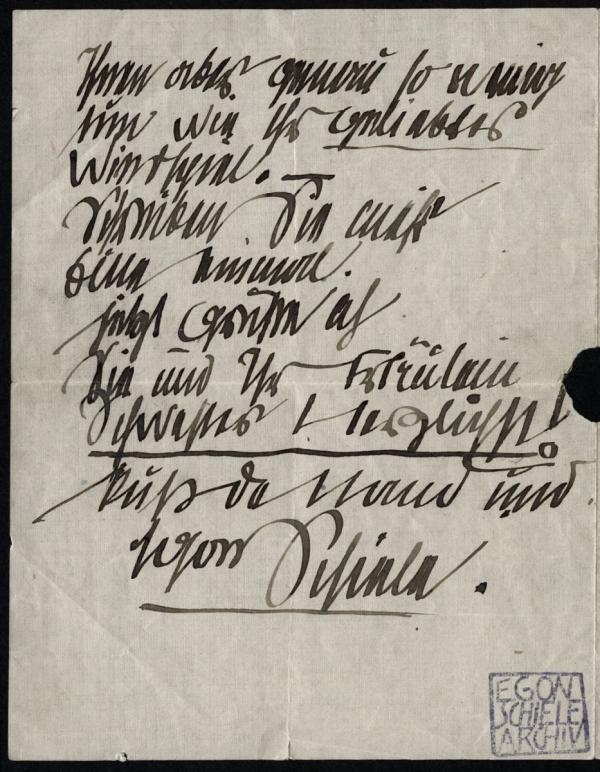 Ihnen aber genau so wenig
tun wie Ihr geliebtes
Windspiel. —
Schreiben Sie mir
bitte einmal.
jetzt Grüsse ich
Sie und Ihr Fräulein
Schwester herzlichst!
Küß die Hand und
Egon Schiele.
EGON
SCHIELE
ARCHIV